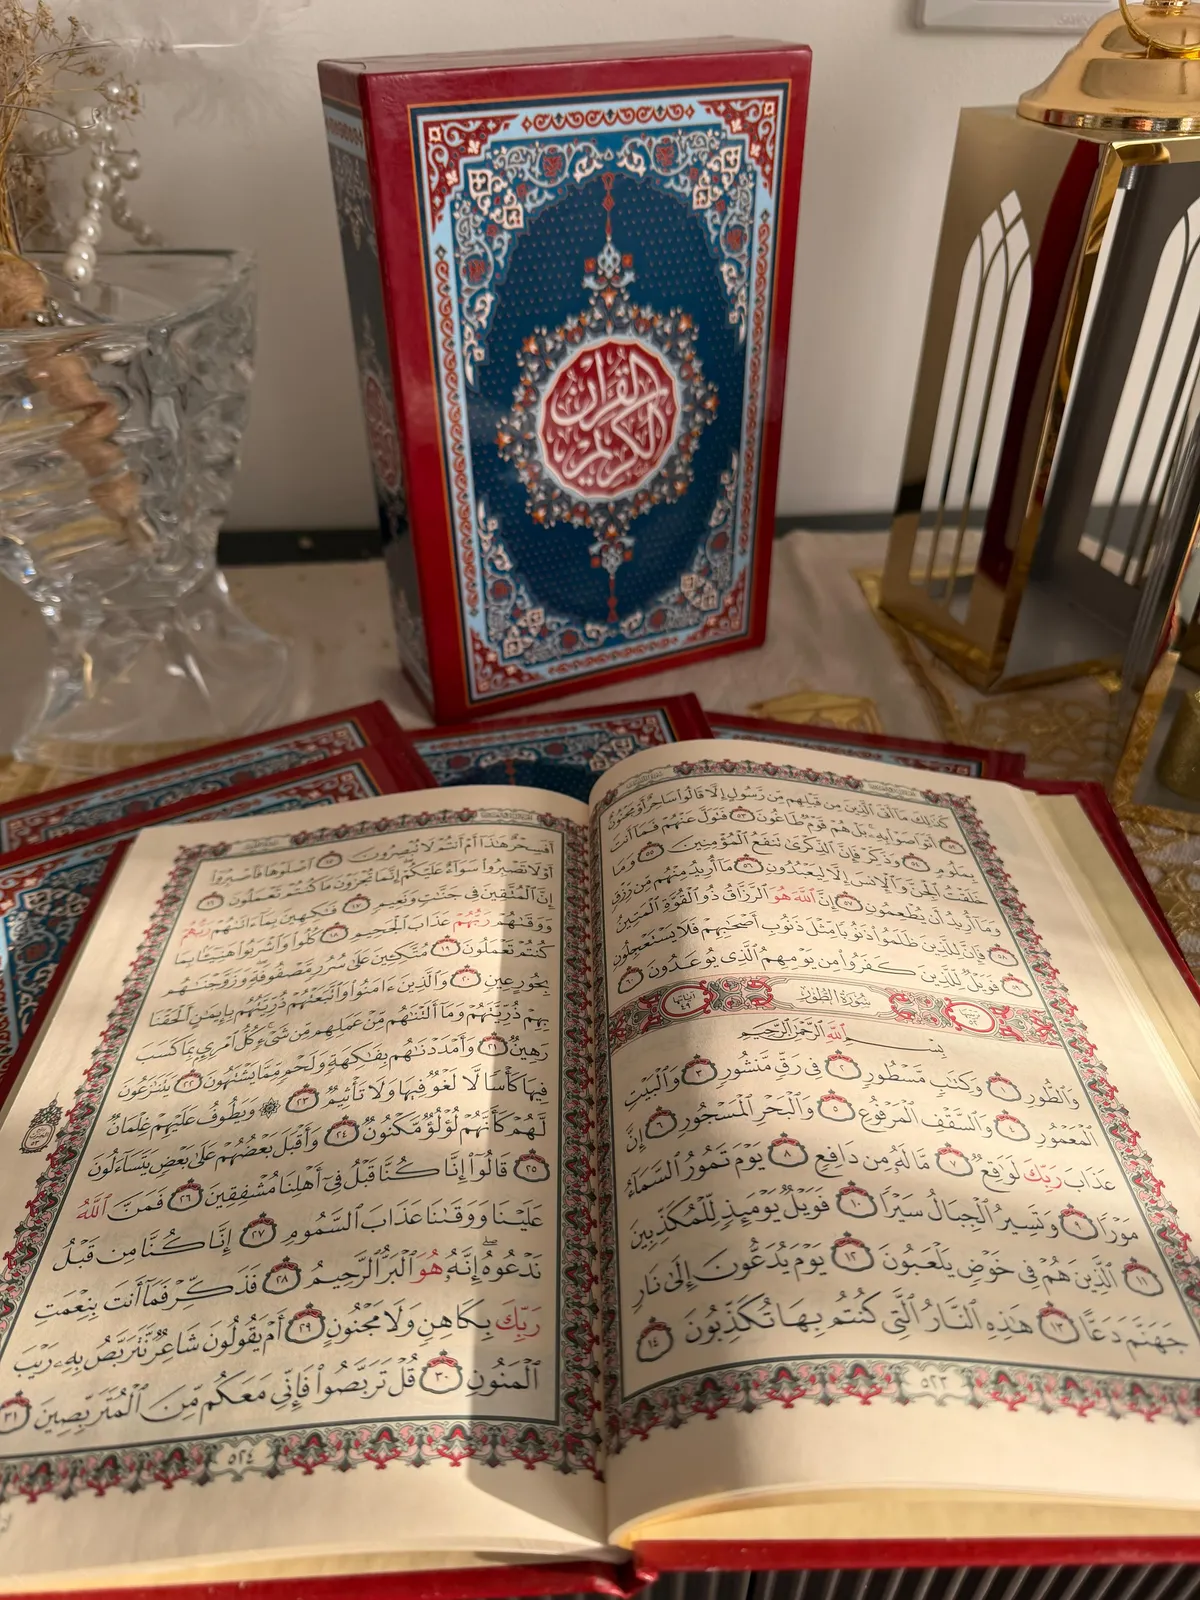 القرآن
الكريم
كَذَٰلِكَ مَآ أَتَى ٱلَّذِينَ مِن قَبْلِهِم مِّن رَّسُولٍ إِلَّا قَالُوا۟ سَاحِرٌ أَوْ مَجْنُونٌ
٥٢ أَتَوَاصَوْا۟ بِهِۦ ۚ بَلْ هُمْ قَوْمٌ طَاغُونَ ٥٣ فَتَوَلَّ عَنْهُمْ فَمَآ أَنتَ
بِمَلُومٍ ٥٤ وَذَكِّرْ فَإِنَّ ٱلذِّكْرَىٰ تَنفَعُ ٱلْمُؤْمِنِينَ ٥٥ وَمَا
خَلَقْتُ ٱلْجِنَّ وَٱلْإِنسَ إِلَّا لِيَعْبُدُونِ ٥٦ مَآ أُرِيدُ مِنْهُم مِّن رِّزْقٍ
وَمَآ أُرِيدُ أَن يُطْعِمُونِ ٥٧ إِنَّ ٱللَّهَ هُوَ ٱلرَّزَّاقُ ذُو ٱلْقُوَّةِ ٱلْمَتِينُ
٥٨ فَإِنَّ لِلَّذِينَ ظَلَمُوا۟ ذَنُوبًا مِّثْلَ ذَنُوبِ أَصْحَٰبِهِمْ فَلَا يَسْتَعْجِلُونِ
٥٩ فَوَيْلٌ لِّلَّذِينَ كَفَرُوا۟ مِن يَوْمِهِمُ ٱلَّذِى يُوعَدُونَ ٦٠
ترتيبها ٥٢ سُورَةُ الطُّورِ آياتها ٤٩
بِسْمِ ٱللَّهِ ٱلرَّحْمَٰنِ ٱلرَّحِيمِ
وَٱلطُّورِ ١ وَكِتَٰبٍ مَّسْطُورٍ ٢ فِى رَقٍّ مَّنشُورٍ ٣ وَٱلْبَيْتِ
ٱلْمَعْمُورِ ٤ وَٱلسَّقْفِ ٱلْمَرْفُوعِ ٥ وَٱلْبَحْرِ ٱلْمَسْجُورِ ٦ إِنَّ
عَذَابَ رَبِّكَ لَوَٰقِعٌ ٧ مَّا لَهُۥ مِن دَافِعٍ ٨ يَوْمَ تَمُورُ ٱلسَّمَآءُ
مَوْرًا ٩ وَتَسِيرُ ٱلْجِبَالُ سَيْرًا ١٠ فَوَيْلٌ يَوْمَئِذٍ لِّلْمُكَذِّبِينَ
١١ ٱلَّذِينَ هُمْ فِى خَوْضٍ يَلْعَبُونَ ١٢ يَوْمَ يُدَعُّونَ إِلَىٰ نَارِ
جَهَنَّمَ دَعًّا ١٣ هَٰذِهِ ٱلنَّارُ ٱلَّتِى كُنتُم بِهَا تُكَذِّبُونَ ١٤
٥٢٣
أَفَسِحْرٌ هَٰذَآ أَمْ أَنتُمْ لَا تُبْصِرُونَ ١٥ ٱصْلَوْهَا فَٱصْبِرُوٓا۟
أَوْ لَا تَصْبِرُوا۟ سَوَآءٌ عَلَيْكُمْ ۖ إِنَّمَا تُجْزَوْنَ مَا كُنتُمْ تَعْمَلُونَ ١٦
إِنَّ ٱلْمُتَّقِينَ فِى جَنَّٰتٍ وَنَعِيمٍ ١٧ فَٰكِهِينَ بِمَآ ءَاتَىٰهُمْ رَبُّهُمْ
وَوَقَىٰهُمْ رَبُّهُمْ عَذَابَ ٱلْجَحِيمِ ١٨ كُلُوا۟ وَٱشْرَبُوا۟ هَنِيٓـًٔۢا بِمَا
كُنتُمْ تَعْمَلُونَ ١٩ مُتَّكِـِٔينَ عَلَىٰ سُرُرٍ مَّصْفُوفَةٍ ۖ وَزَوَّجْنَٰهُم
بِحُورٍ عِينٍ ٢٠ وَٱلَّذِينَ ءَامَنُوا۟ وَٱتَّبَعَتْهُمْ ذُرِّيَّتُهُم بِإِيمَٰنٍ أَلْحَقْنَا
بِهِمْ ذُرِّيَّتَهُمْ وَمَآ أَلَتْنَٰهُم مِّنْ عَمَلِهِم مِّن شَىْءٍ ۚ كُلُّ ٱمْرِئٍۭ بِمَا كَسَبَ
رَهِينٌ ٢١ وَأَمْدَدْنَٰهُم بِفَٰكِهَةٍ وَلَحْمٍ مِّمَّا يَشْتَهُونَ ٢٢ يَتَنَٰزَعُونَ
فِيهَا كَأْسًا لَّا لَغْوٌ فِيهَا وَلَا تَأْثِيمٌ ٢٣ ۞ وَيَطُوفُ عَلَيْهِمْ غِلْمَانٌ
لَّهُمْ كَأَنَّهُمْ لُؤْلُؤٌ مَّكْنُونٌ ٢٤ وَأَقْبَلَ بَعْضُهُمْ عَلَىٰ بَعْضٍ يَتَسَآءَلُونَ
٢٥ قَالُوٓا۟ إِنَّا كُنَّا قَبْلُ فِىٓ أَهْلِنَا مُشْفِقِينَ ٢٦ فَمَنَّ ٱللَّهُ
عَلَيْنَا وَوَقَىٰنَا عَذَابَ ٱلسَّمُومِ ٢٧ إِنَّا كُنَّا مِن قَبْلُ
نَدْعُوهُ ۖ إِنَّهُۥ هُوَ ٱلْبَرُّ ٱلرَّحِيمُ ٢٨ فَذَكِّرْ فَمَآ أَنتَ بِنِعْمَتِ
رَبِّكَ بِكَاهِنٍ وَلَا مَجْنُونٍ ٢٩ أَمْ يَقُولُونَ شَاعِرٌ نَّتَرَبَّصُ بِهِۦ رَيْبَ
ٱلْمَنُونِ ٣٠ قُلْ تَرَبَّصُوا۟ فَإِنِّى مَعَكُم مِّنَ ٱلْمُتَرَبِّصِينَ ٣١
٥٢٤